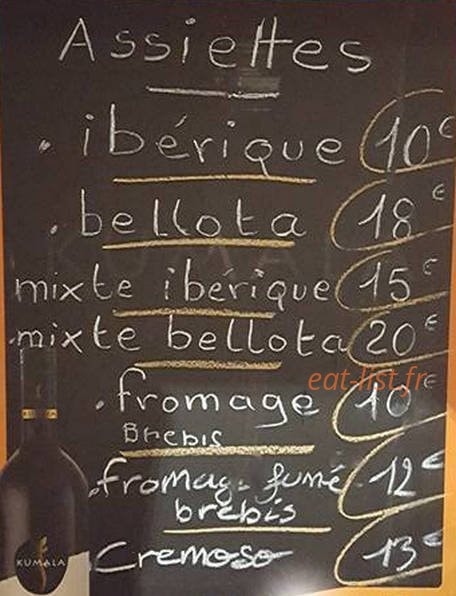 Assiettes
. ibérique 10€
. bellota 18€
mixte ibérique 15€
.mixte bellota 20€
eat-list.fr
. fromage 10€
Brebis
.fromage fumé 12€
brebis
Cremoso 13€
KUMALA